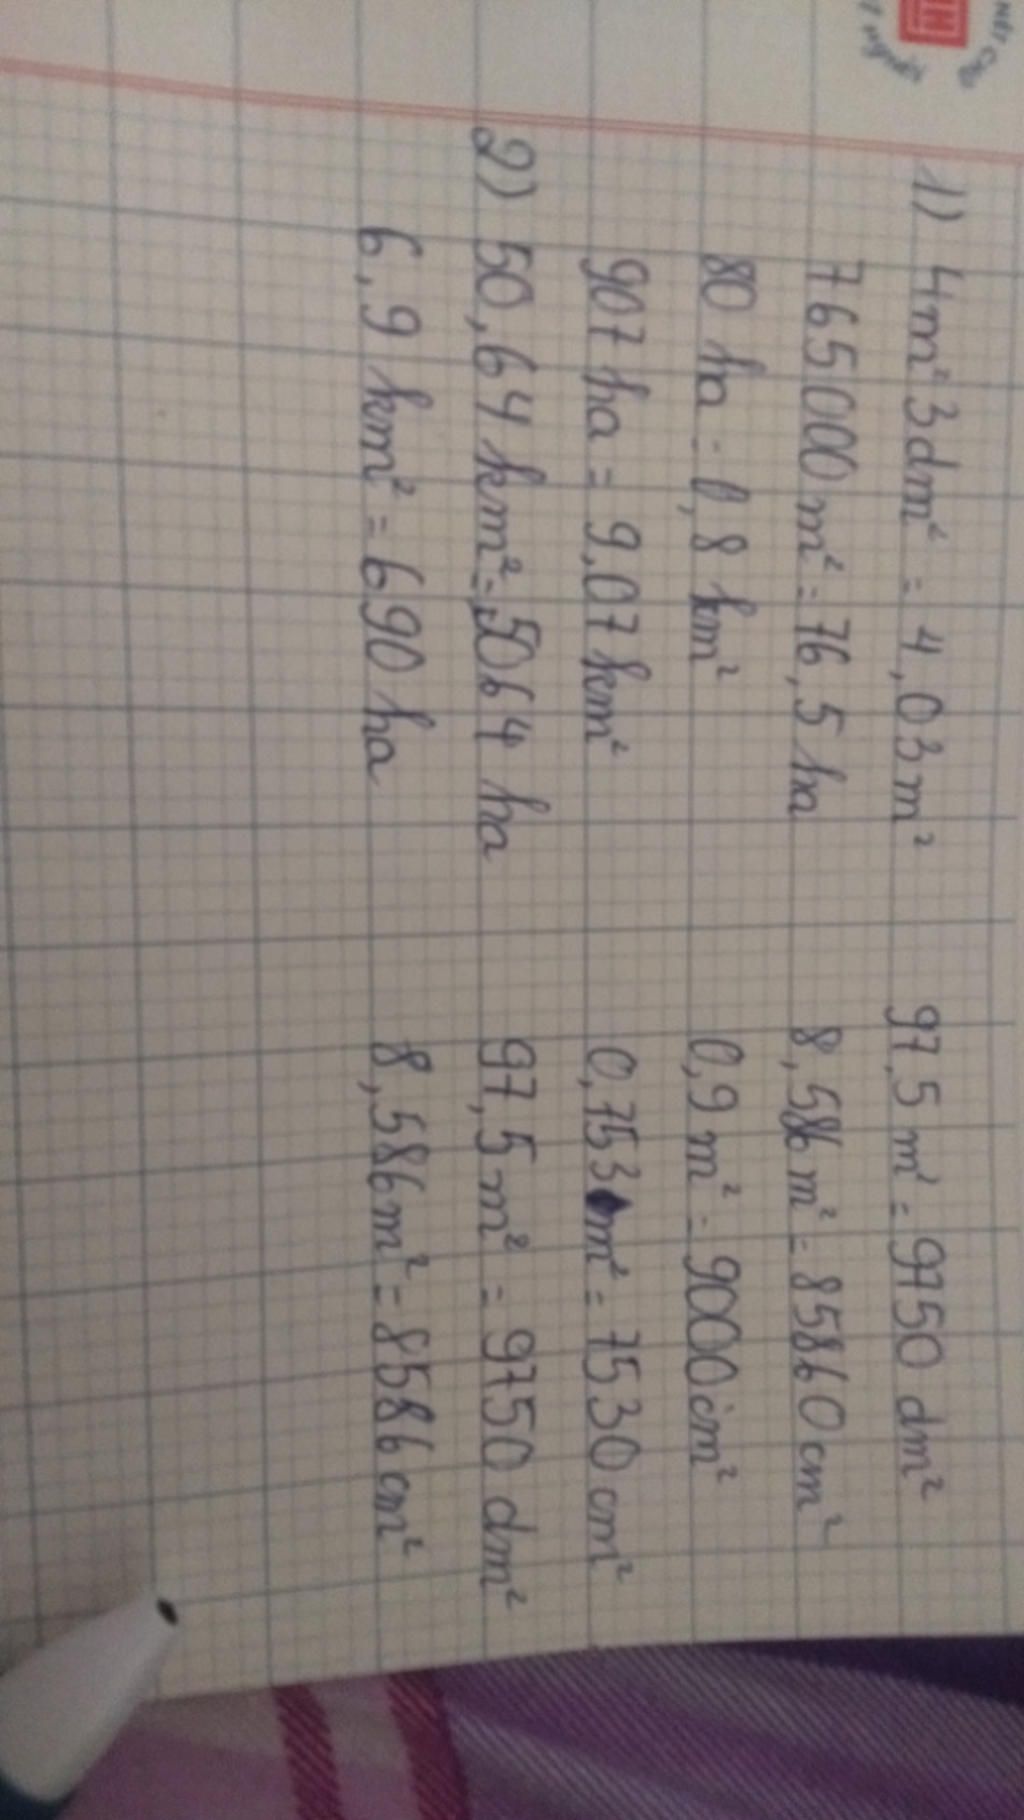 1) 4m² 3dm² = 4,03m² 97,5 m² = 9750 dm²
765000 m² = 76,5 ha 8,586 m² = 85860 cm²
80 ha = 0,8 km² 0,9 m² = 9000 cm²
907 ha = 9,07 km² 0,753 m² = 7530 cm²
2) 50,64 km² = 5064 ha 97,5 m² = 9750 dm²
6,9 km² = 690 ha 8,586 m² = 8586 cm²